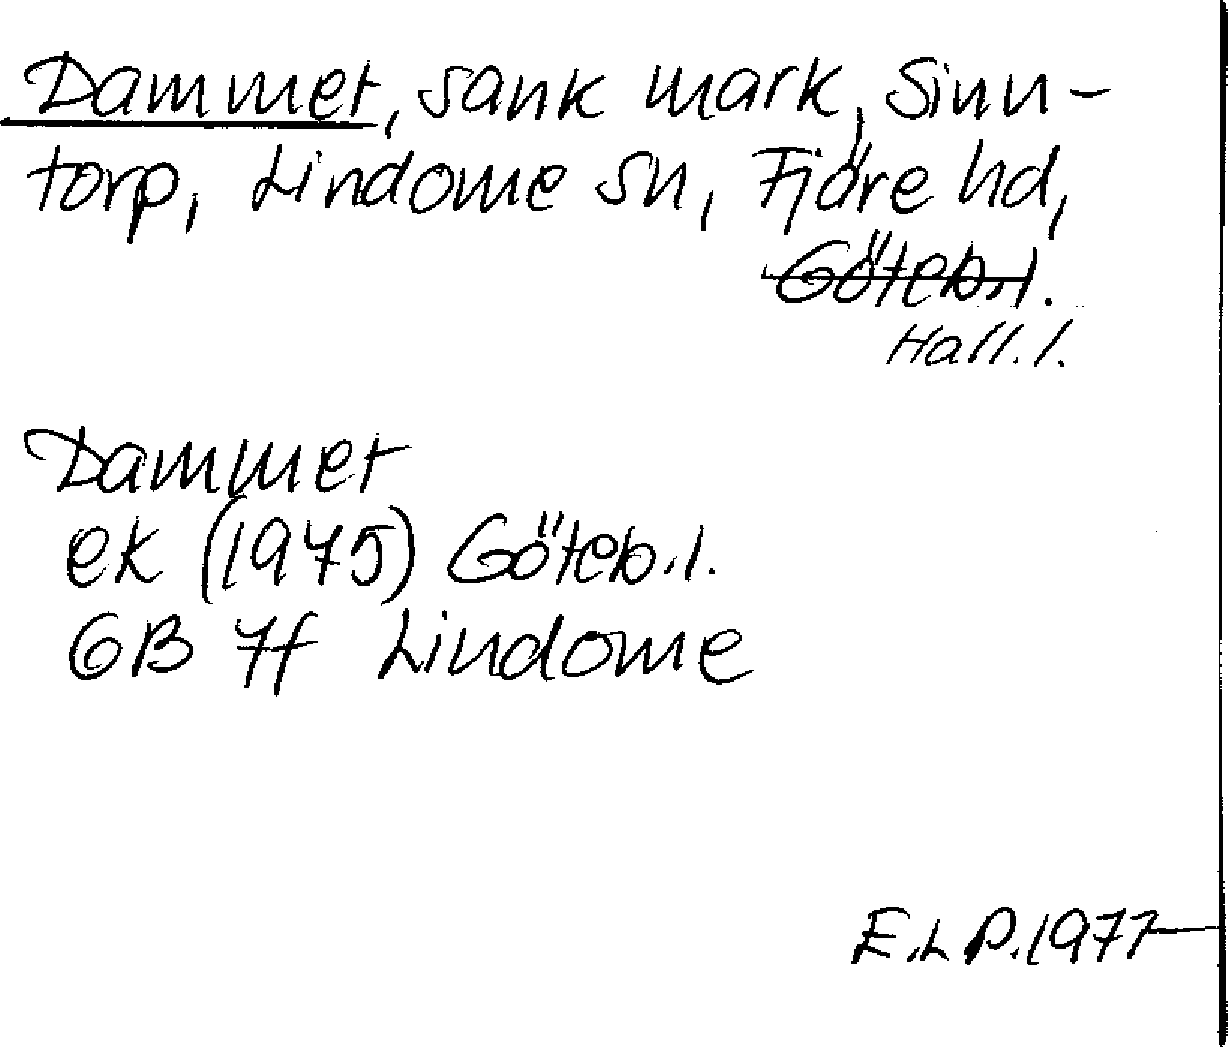 Dammet, sank mark, Sinn-
torp, Lindome sn, Fjäre hd,
Göteb.l.
Hall.l.
Dammet
ek (1975) Göteb.l.
6B 7f Lindome
E.L P.1977